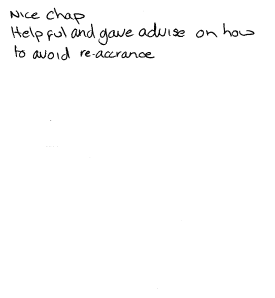 Nice Chap
Helpful and gave advise on how
to avoid re-accrance